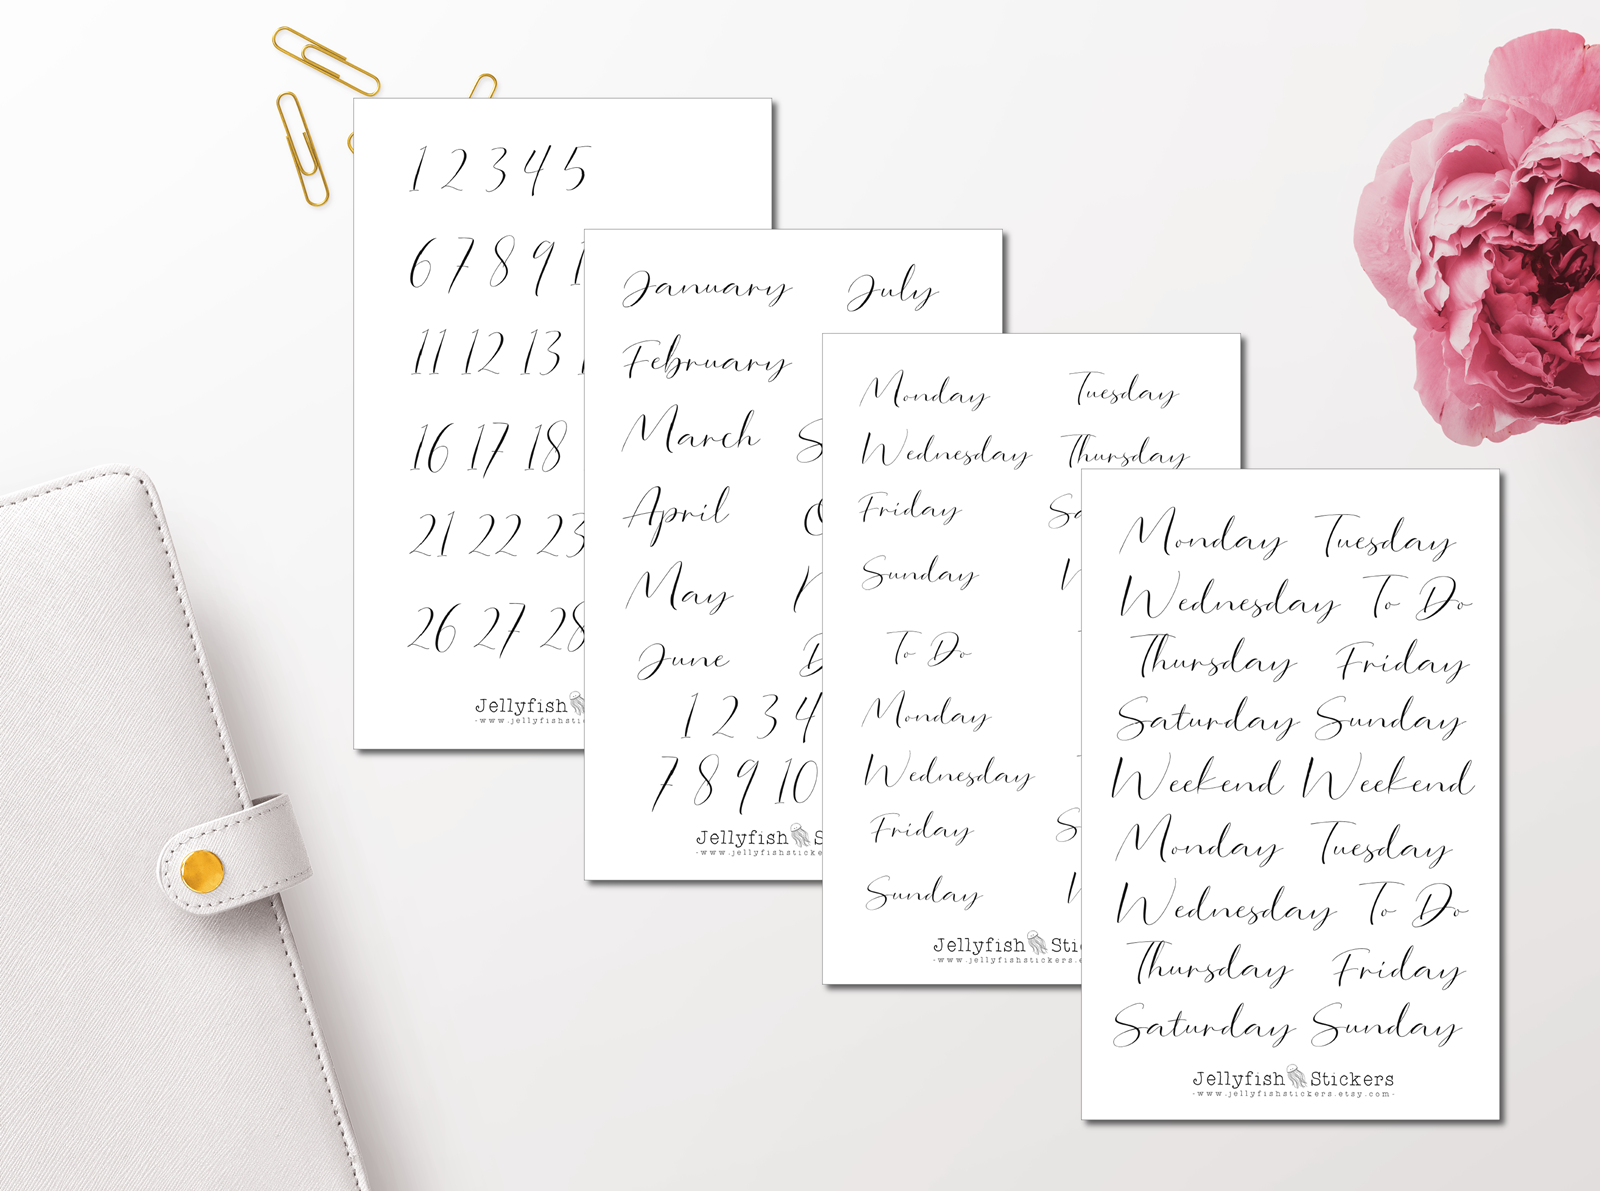 1 2 3 4 5
6 7 8 9
11 12 13
16 17 18
21 22 23
26 27 28
Jellyfish
January July
February
March
April
May
June
1 2 3 4
7 8 9 10
Jellyfish
Monday Tuesday
Wednesday Thursday
Friday
Sunday
To Do
Monday
Wednesday
Friday
Sunday
Jellyfish
Monday Tuesday
Wednesday To Do
Thursday Friday
Saturday Sunday
Weekend Weekend
Monday Tuesday
Wednesday To Do
Thursday Friday
Saturday Sunday
Jellyfish Stickers
-www.jellyfishstickers.etsy.com-